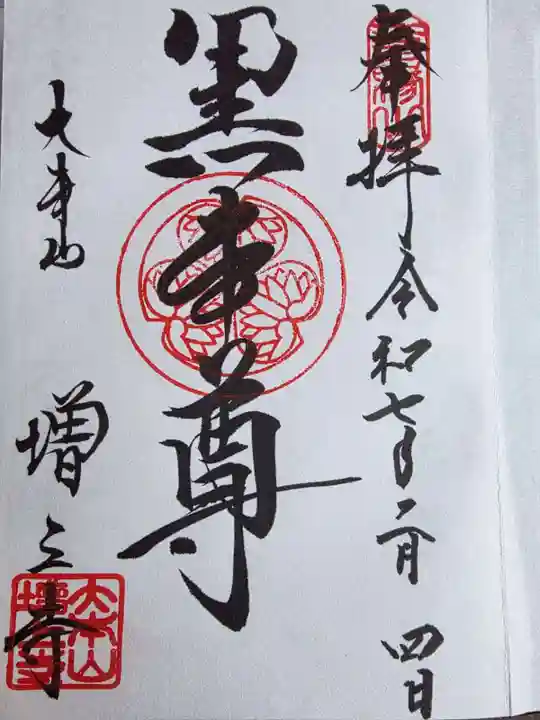 奉拝
令和七年二月四日
黒本尊
大本山
増上寺
大本山
増上寺